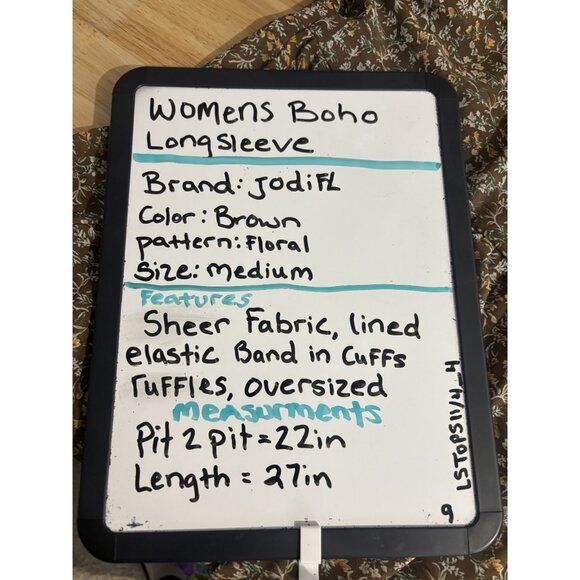 Womens Boho
Longsleeve
Brand: JodiFL
Color: Brown
pattern: Floral
Size: medium
Features
Sheer Fabric, lined
elastic Band in Cuffs
ruffles, oversized
measurments
Pit 2 pit = 22in
Length = 27in
LSTOPS11/4_4
9